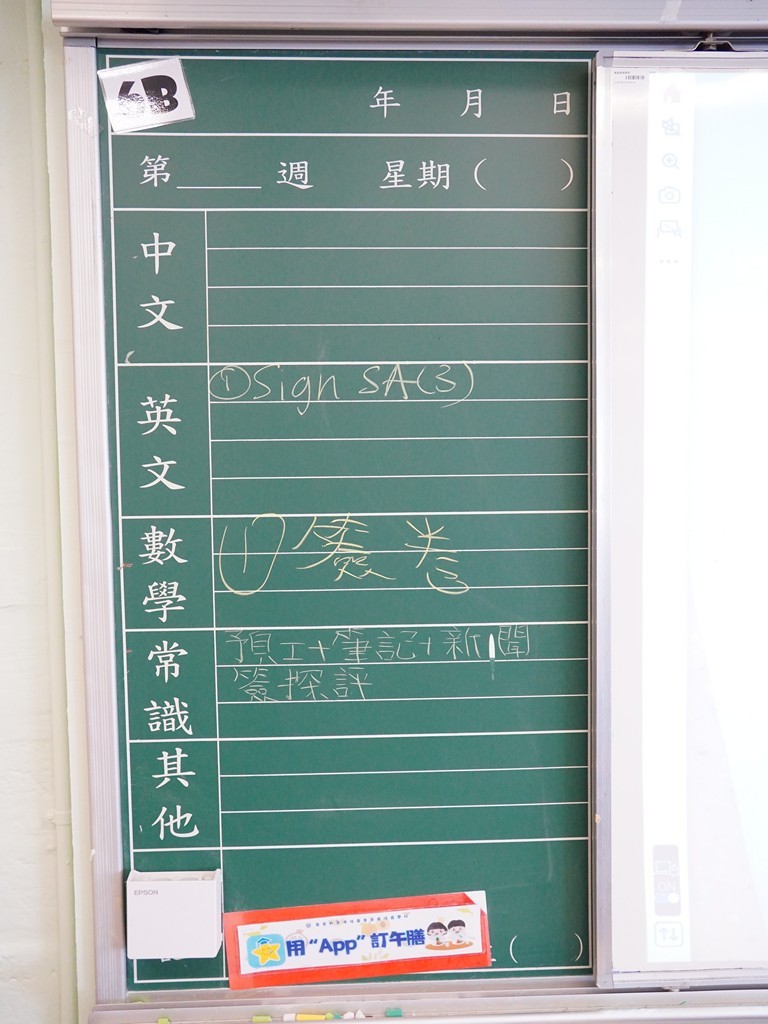 6B
年 月 日
第____週 星期( )
中文
英文
①Sign SA(3)
數學
① 簽卷
常識
預工+筆記+新聞
簽探評
其他
EPSON
用“App”訂午膳
( )
ON